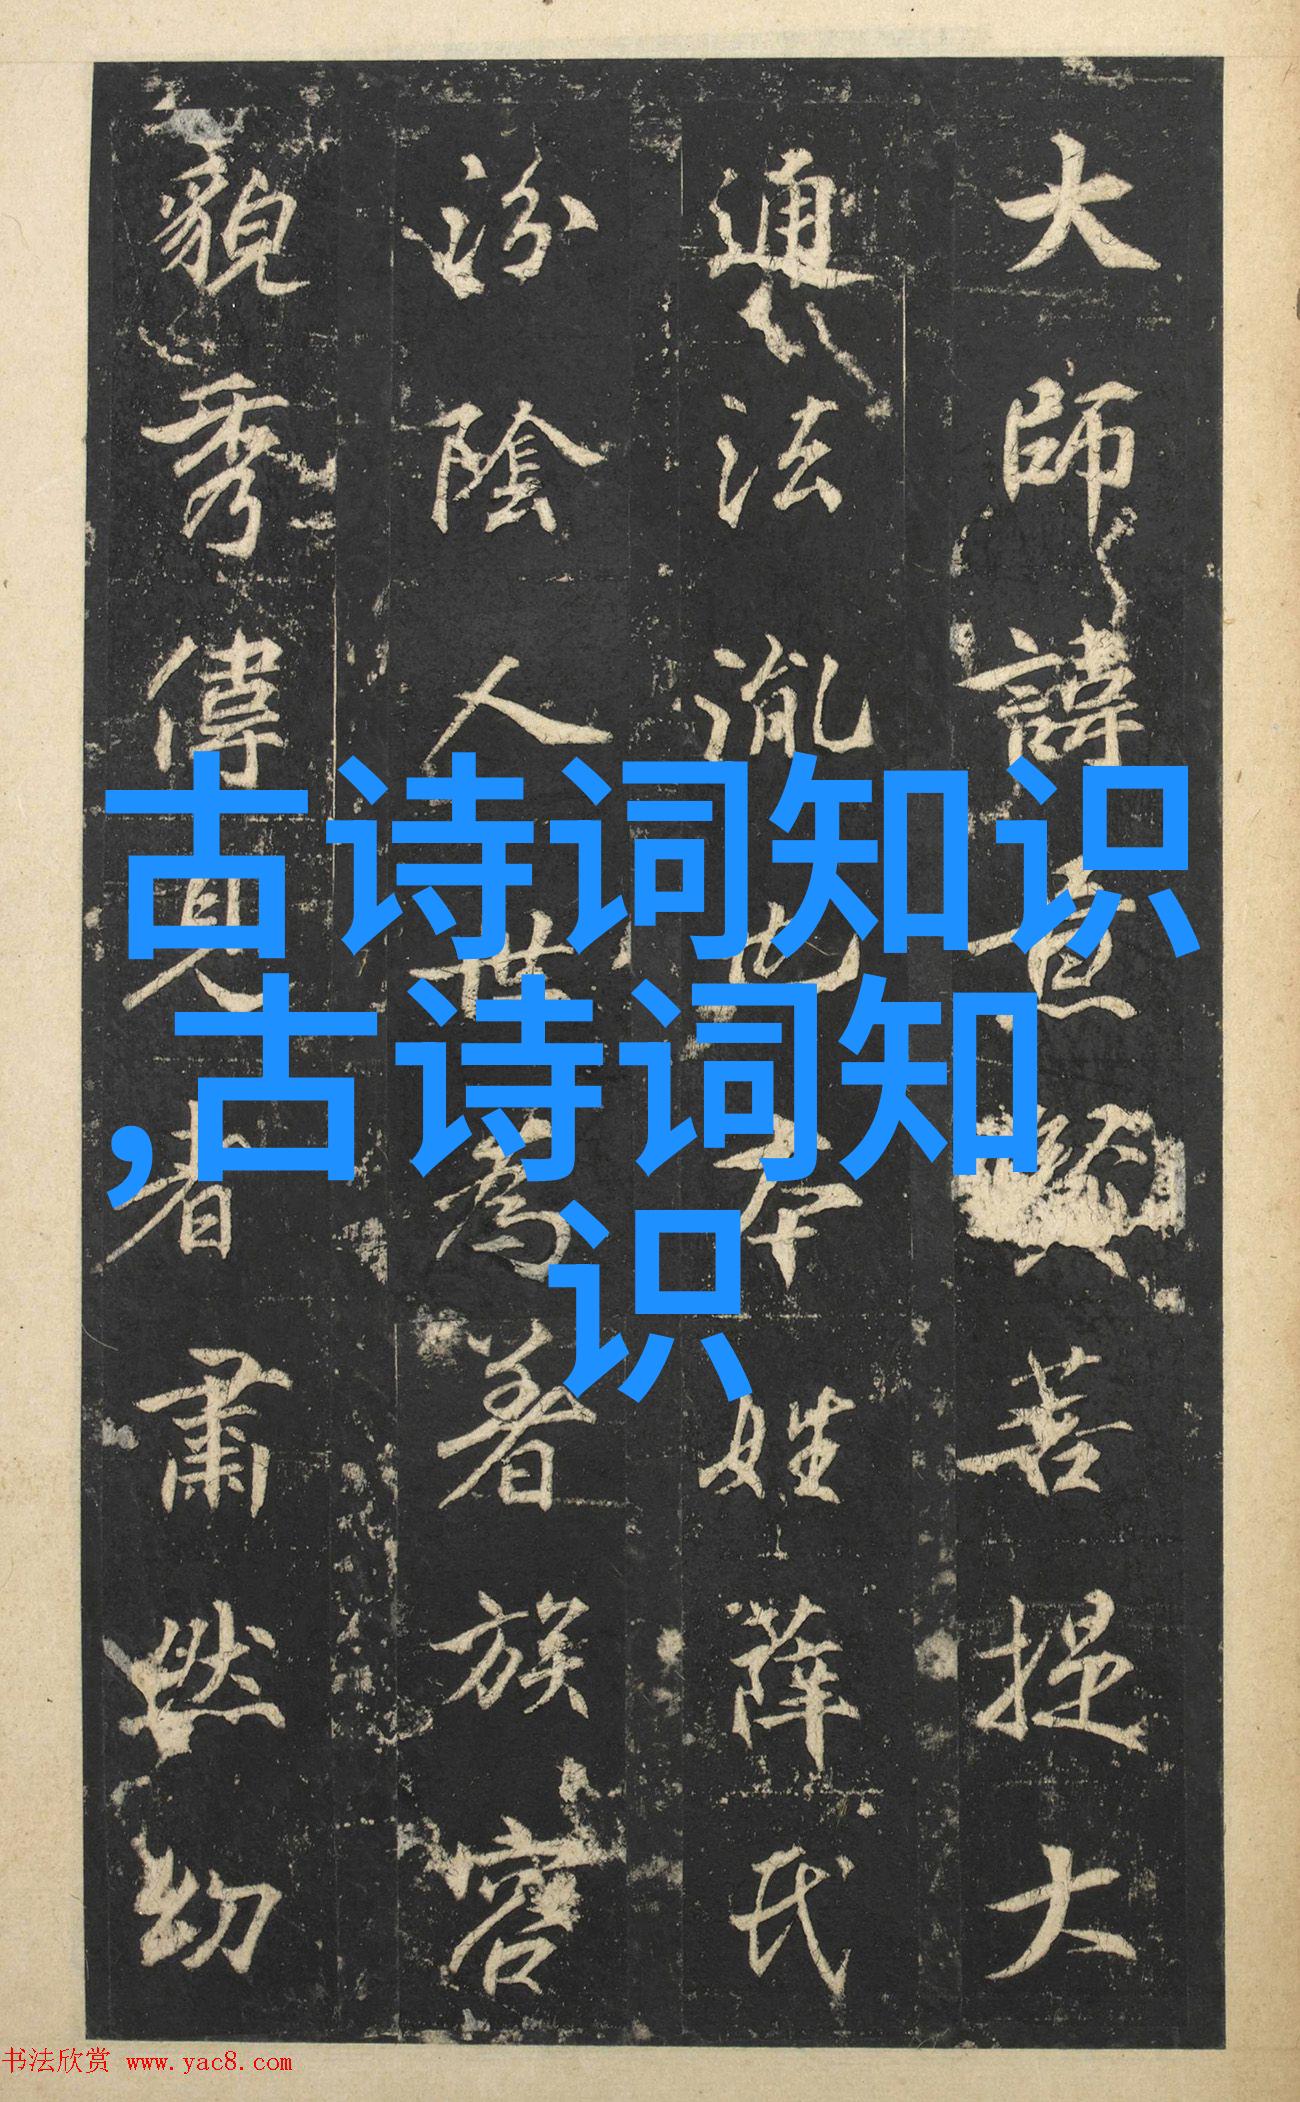 大師諱菩提大
通法胤也本姓薛氏
汾陰人世為著族容
貌秀偉見者肅然幼
古诗词知识
,古诗词知
识
书法欣赏 www.yac8.com